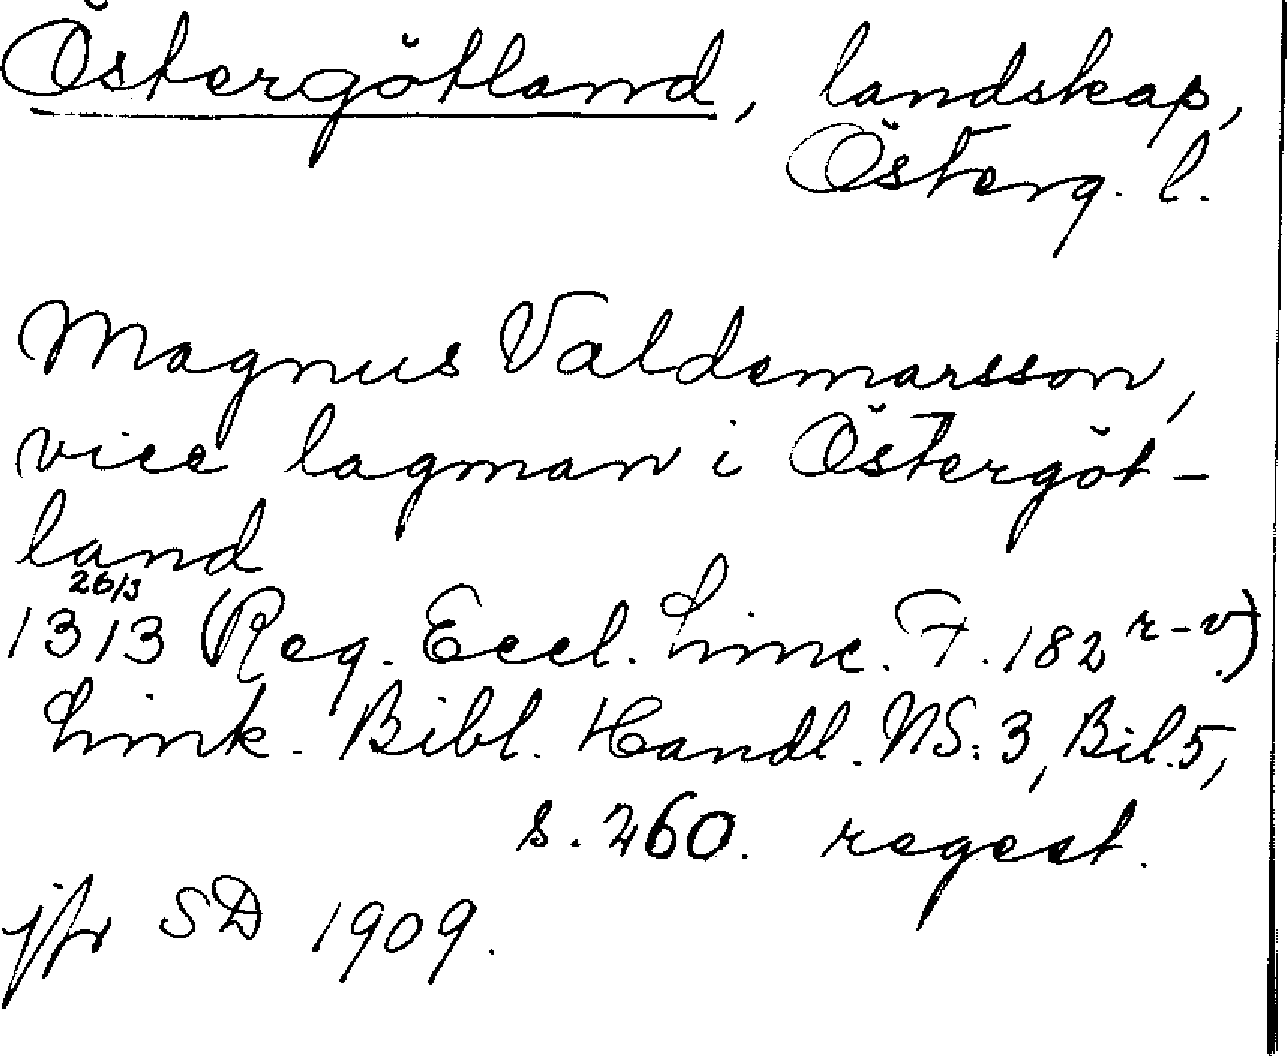 Östergötland, landskap,
Österg. l.
Magnus Valdemarsson,
vice lagman i Östergöt-
land
26/3
1313 (Reg. Eccl. Linc. F. 182 r-v.)
Link. Bibl. Handl. NS: 3, Bil. 5,
s. 260. regest.
jfr SD 1909.